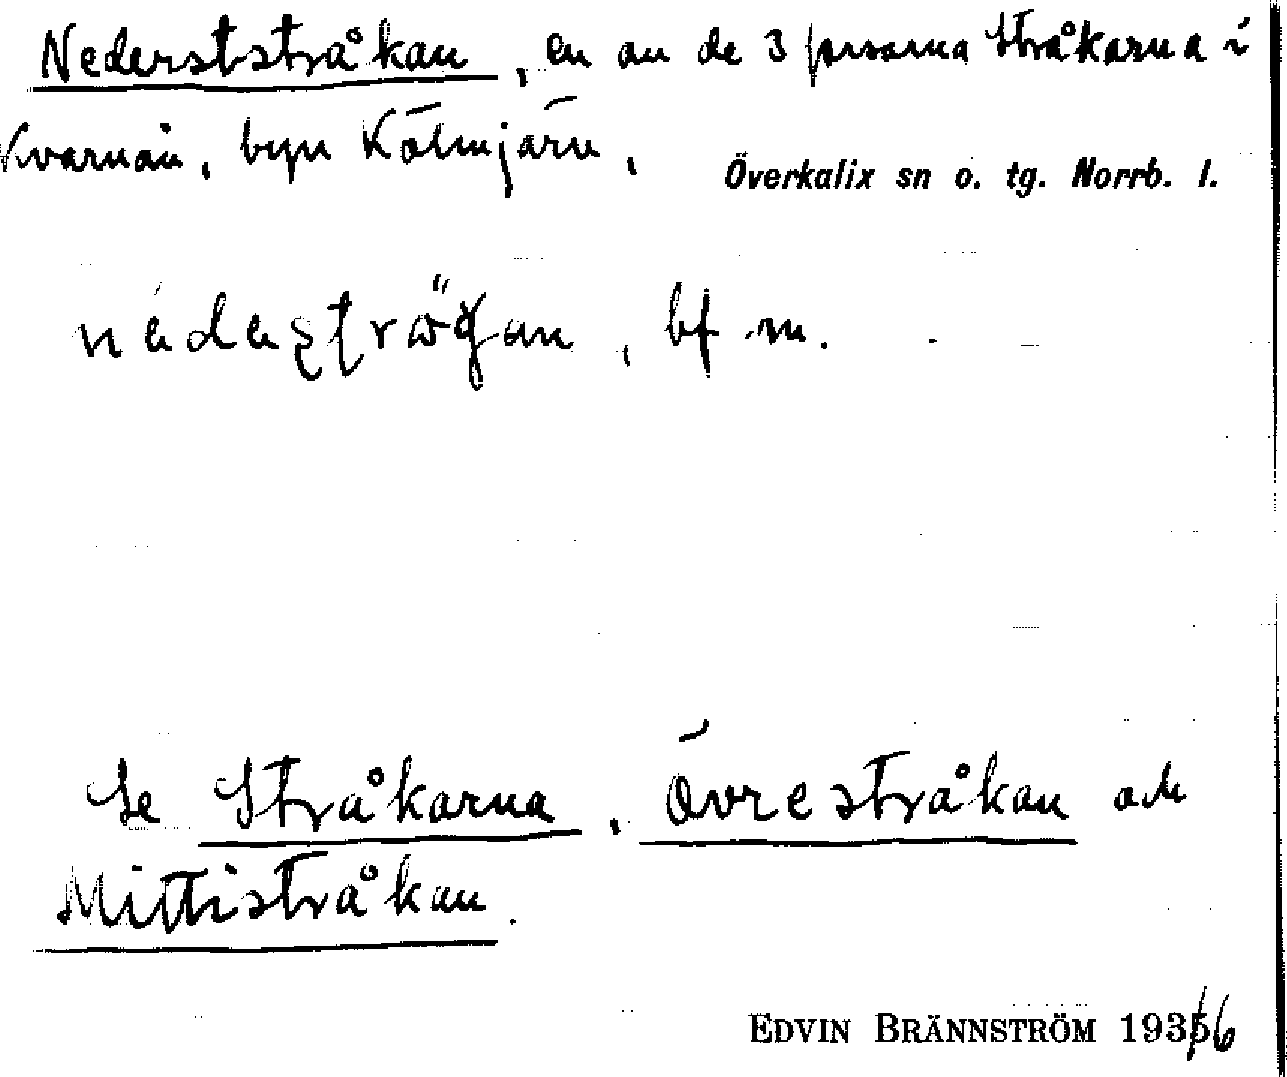 Nederststråkan, en av de 3 forsarna Stråkarna i
Kvarnån, byn Kölmjärv,
Överkalix sn o. tg. Norrb. l.
bf m.
Se Stråkarna, Övrestråkan och
Mittistråkan.
EDVIN BRÄNNSTRÖM 1936